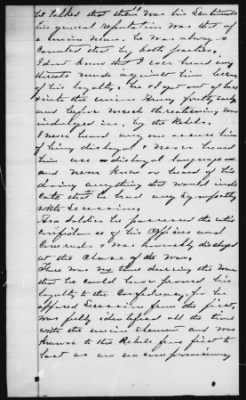 he talked that that was his Sentiments
his general reputation was that of
a union man. he was always
Counted that by both parties.
I dont know that I ever heard any
threats made against him because
of his loyalty. he staped out of her
with the union Army
and before most threatening was
indulged in, by the Rebels.
I never heard any one accuse him
of being disloyal & never heard
him use a disloyal language
and never knew or heard of his
doing anything that would indi
cate that he had any Sympathy
with Secession.
As a Soldier he possessed the
confidence of his Officers and
Comrads & was honorably discharged
at the Close of the War.
There was no time during the War
that he could have proved his
loyalty to the Confederacy, for he
opposed Secession from the first,
was fully identified all the time
with the union element and was
known to the Rebels from first to
last as an uncompromising